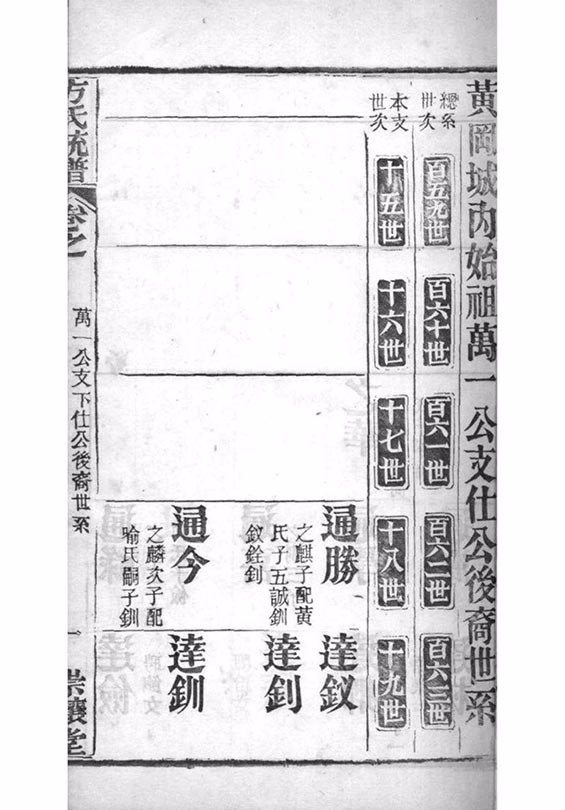 黃岡城內始祖萬一公支仕公後裔世系
總系世次
百五九世
百六十世
百六一世
百六二世
百六三世
本支世次
十五世
十六世
十七世
十八世
十九世
通勝
之麒子配黃
氏子五誠釧
釵銓釗
達釵
達釗
通今
之麟次子配
喻氏嗣子釧
達釧
方氏統譜
卷之
萬一公支下仕公後裔世系
一
崇讓堂